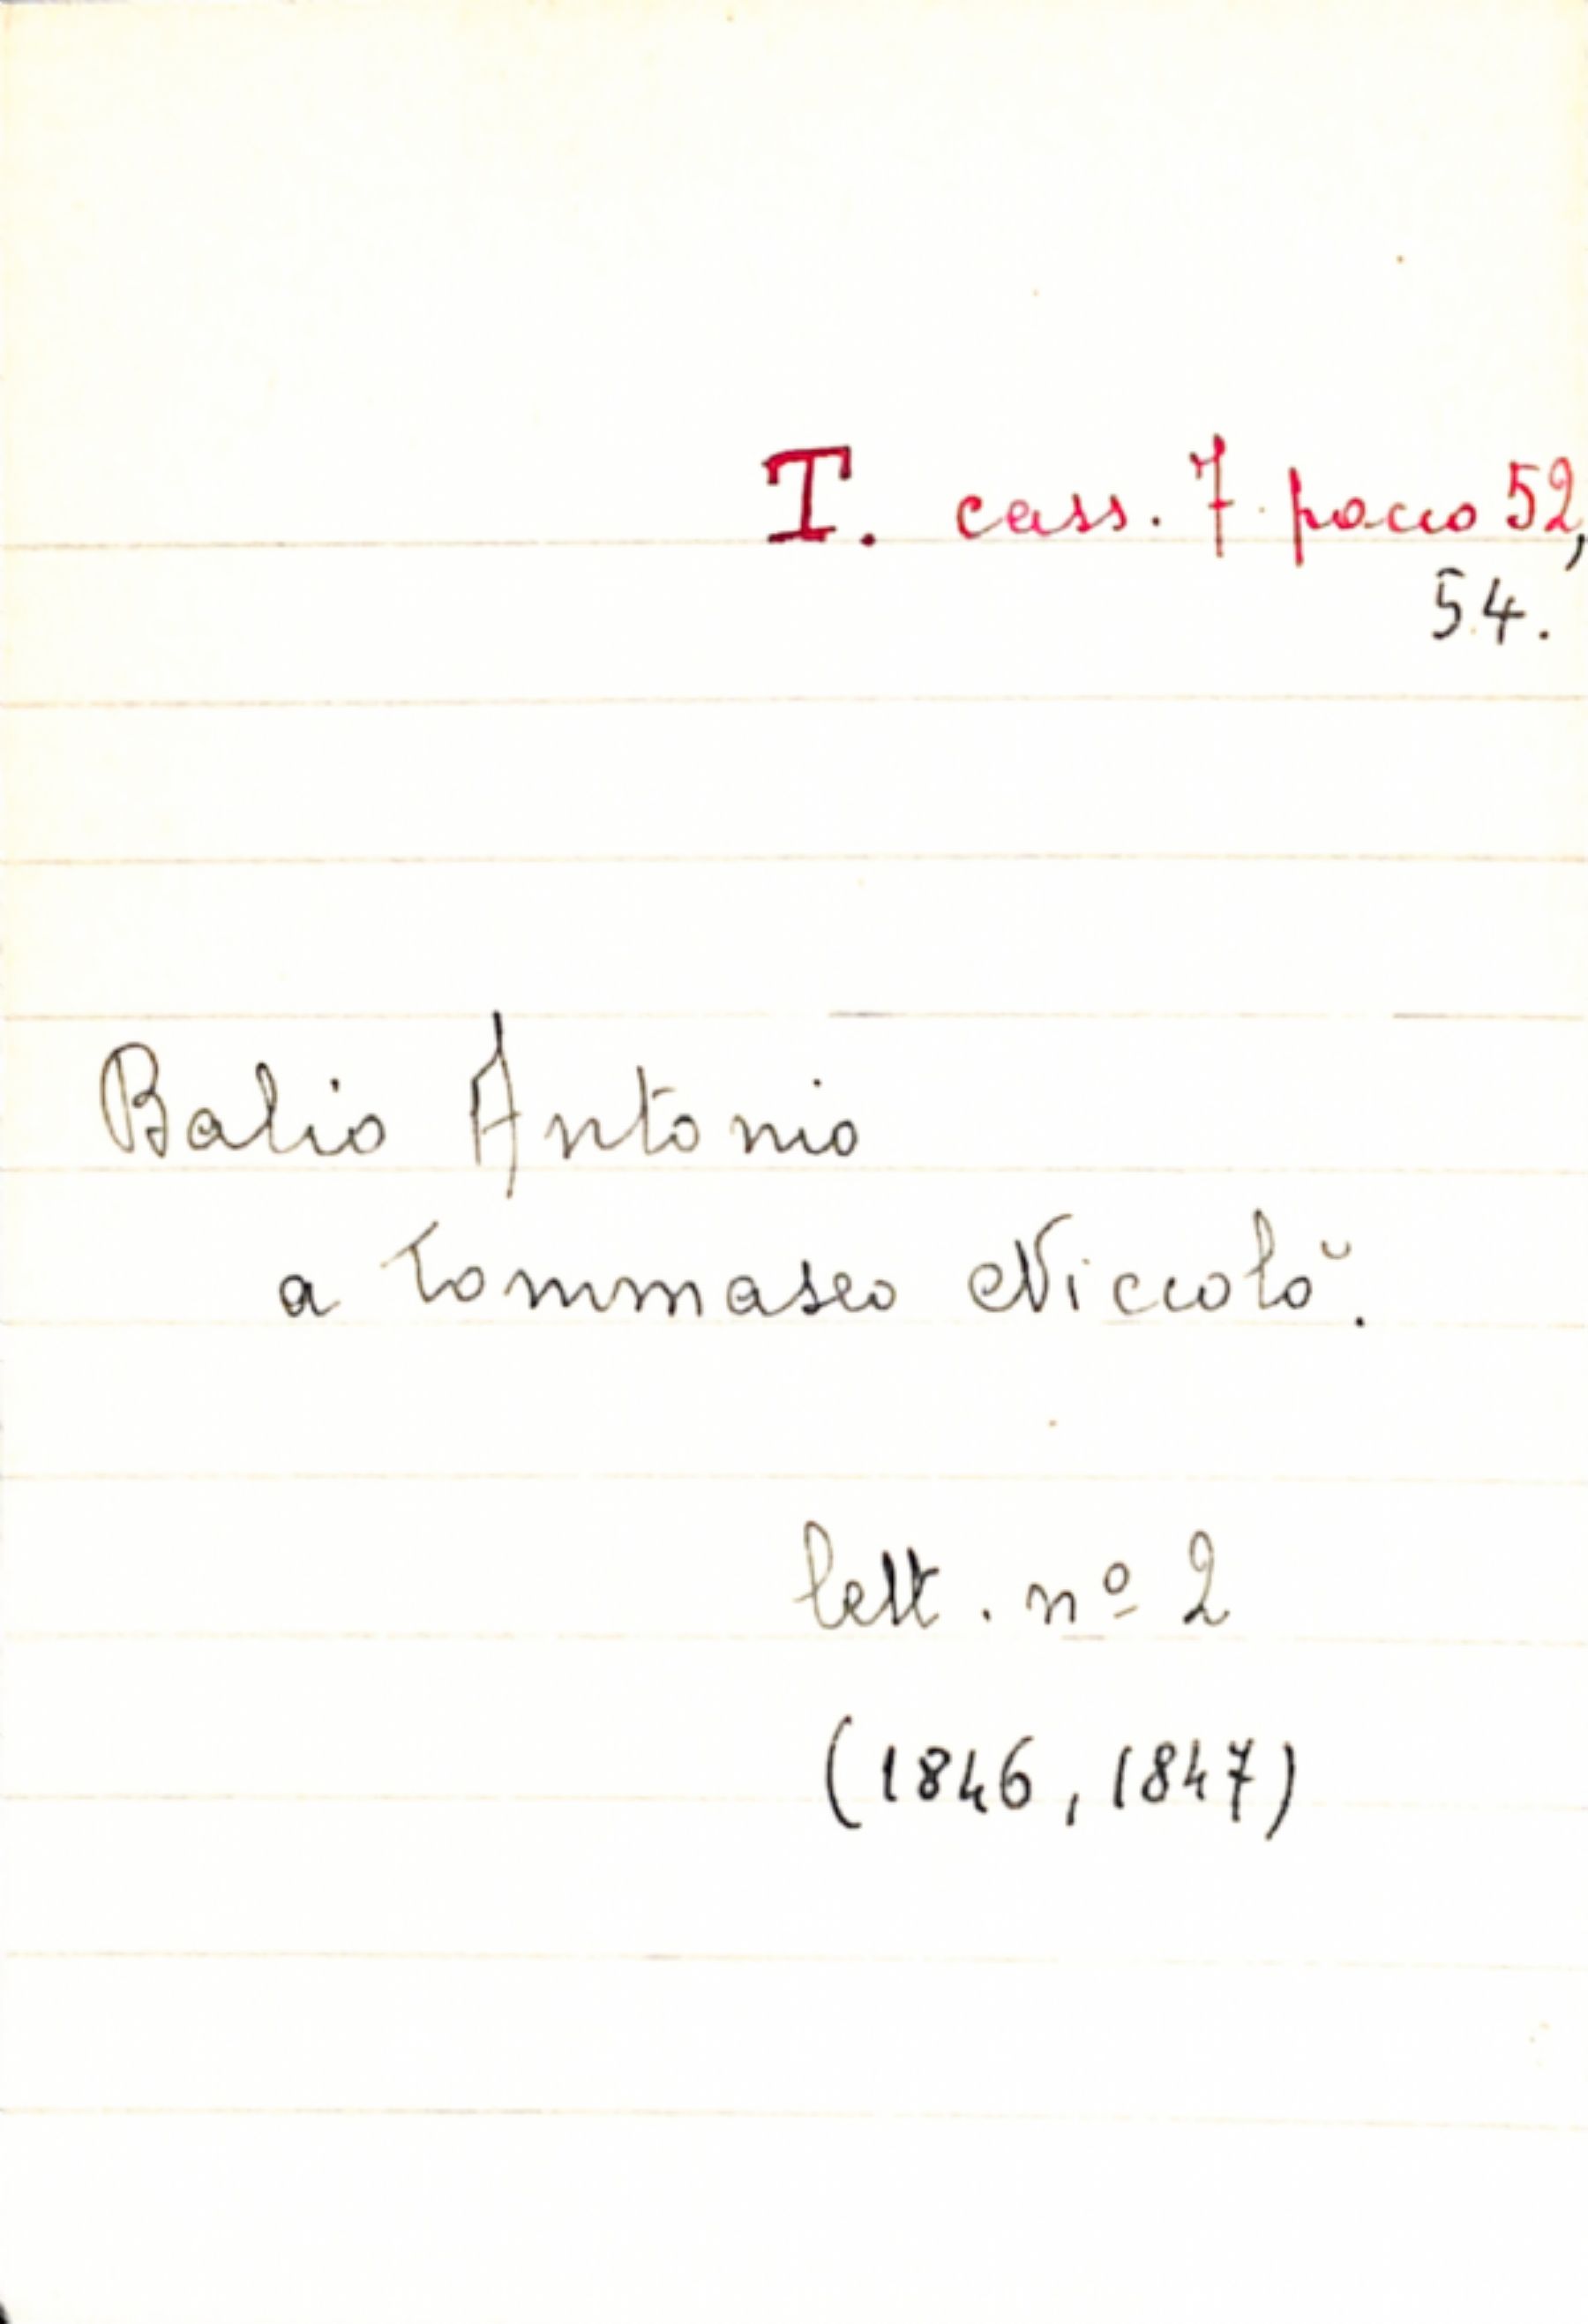 T. cass. 7 pacco 52,
54.
Balio Antonio
a Tommaseo Niccolò.
lett. nº 2
(1846, 1847)